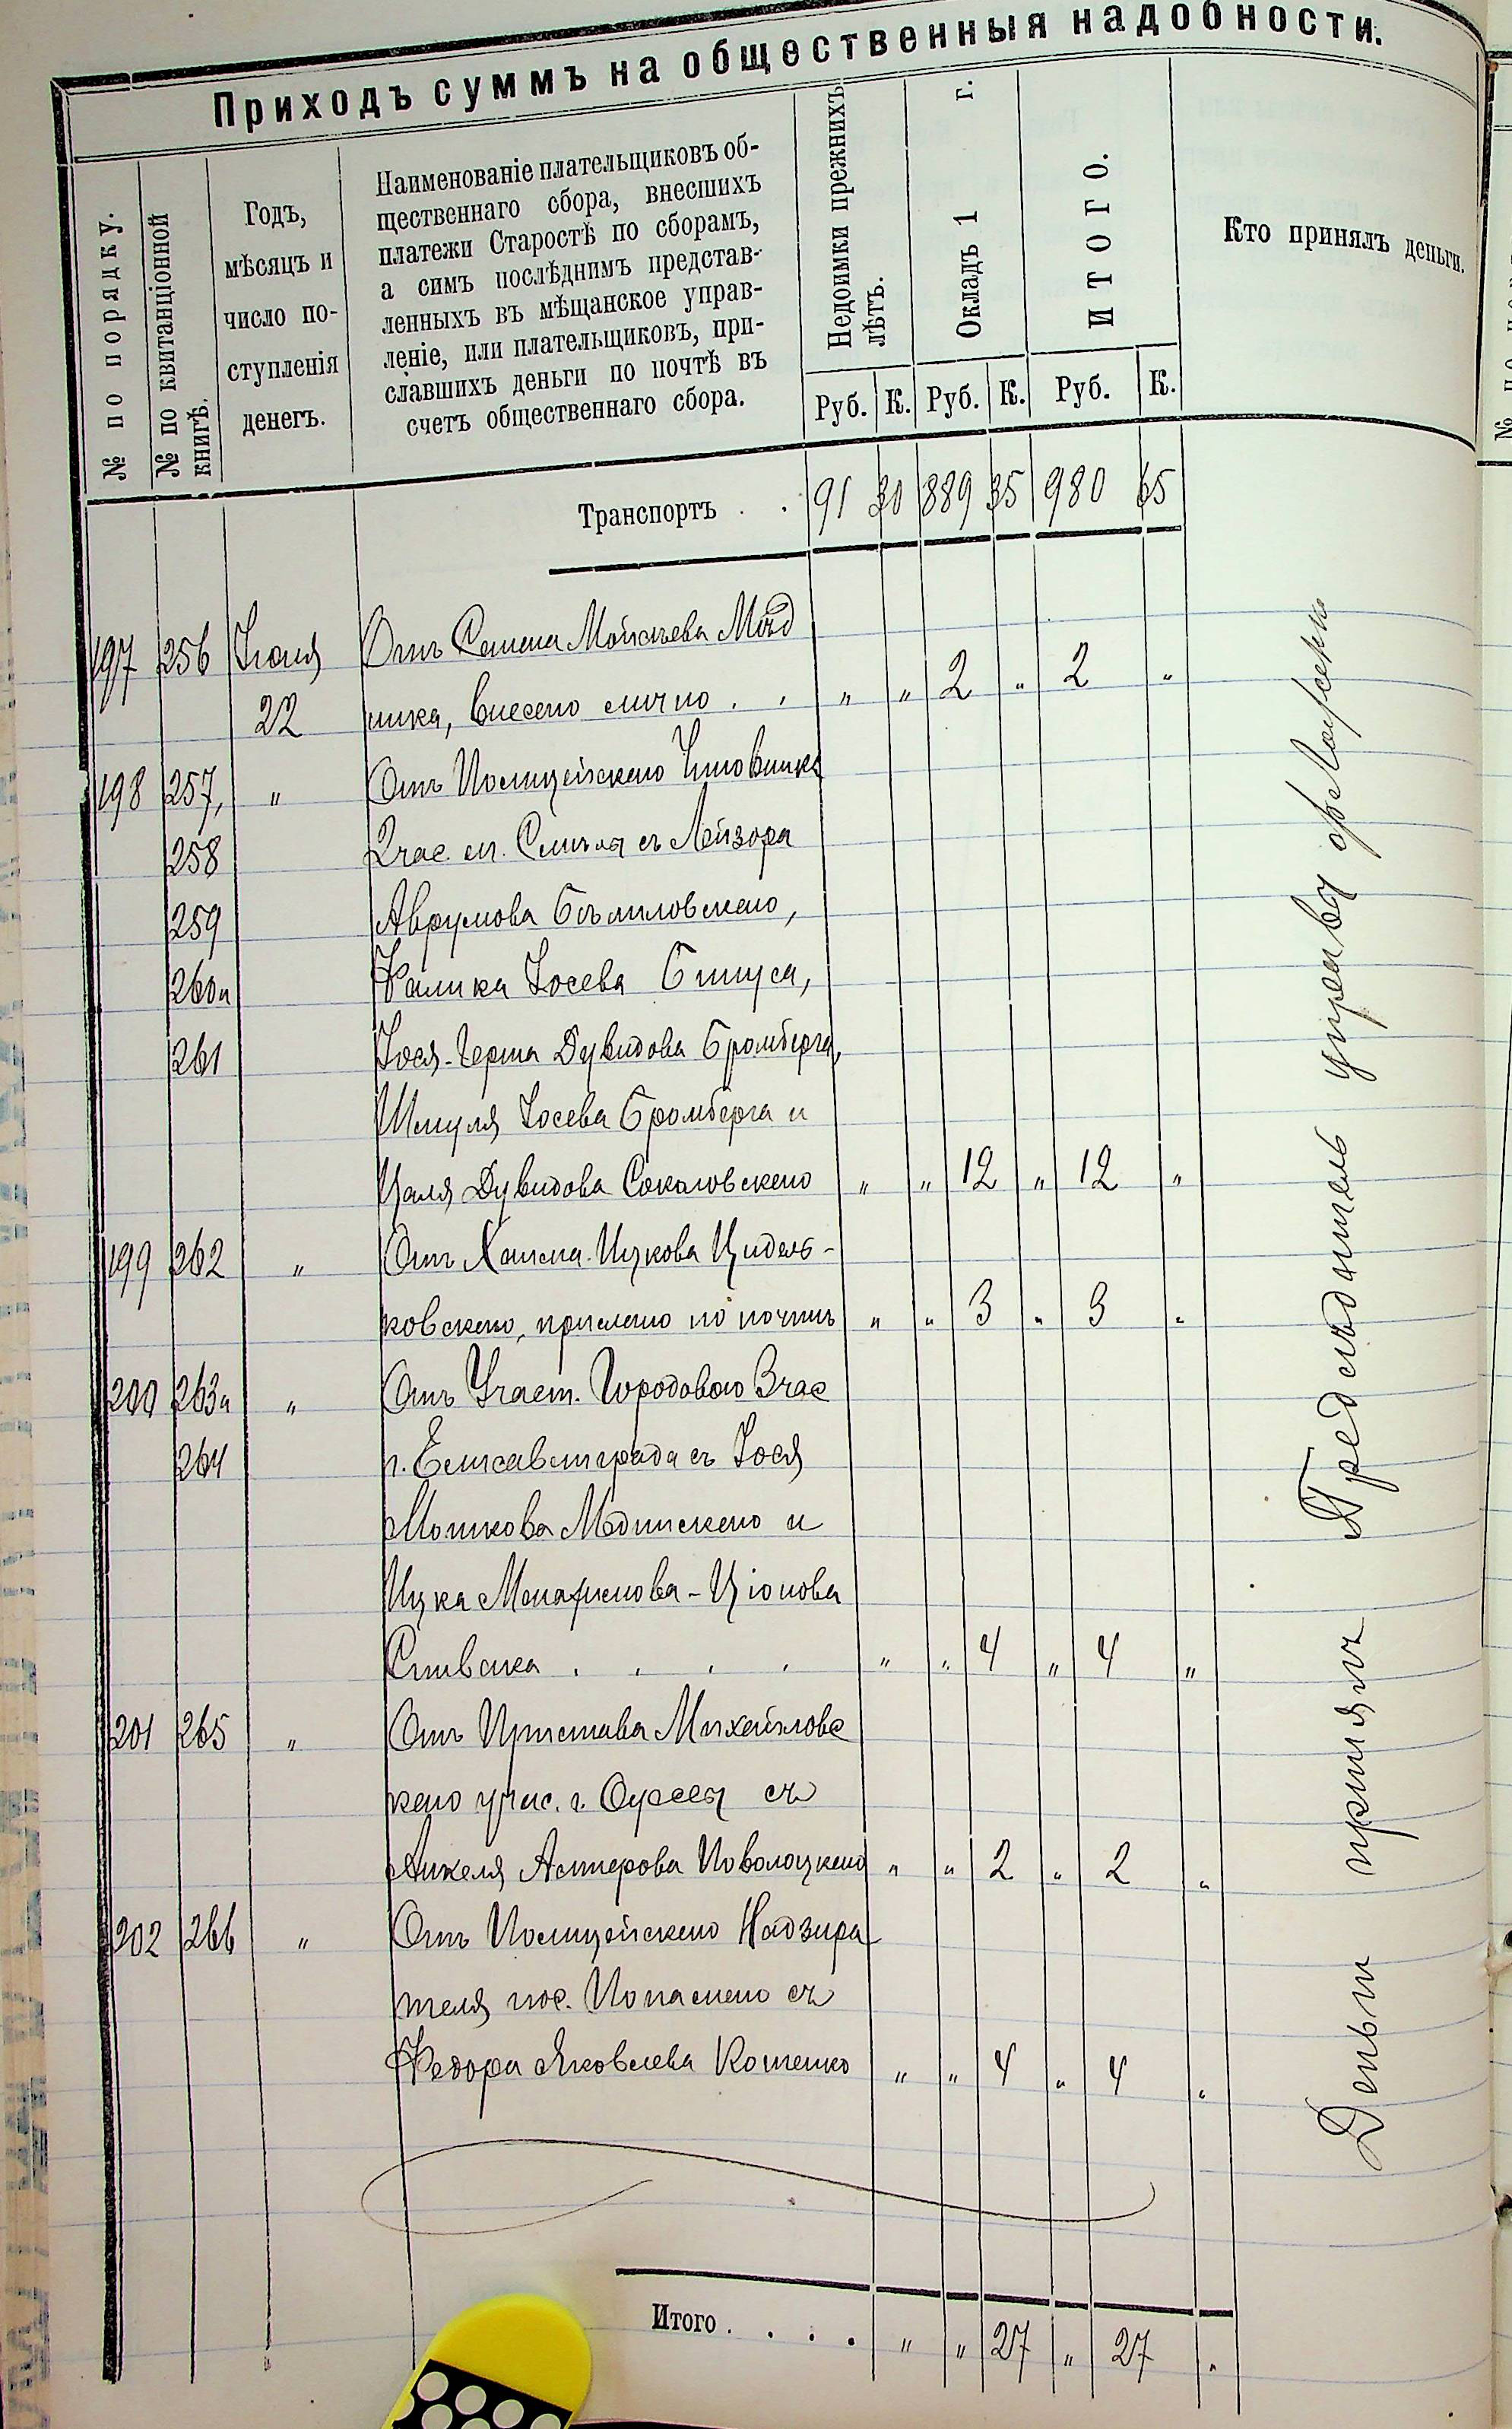 Приходъ суммъ на общественныя надобности.
№ по порядку.
№ по квитанціонной
книгѣ.
Годъ,
мѣсяцъ и
число по-
ступленія
денегъ.
Наименованіе плательщиковъ об-
щественнаго сбора, внесшихъ
платежи Старостѣ по сборамъ,
а симъ послѣднимъ представ-
ленныхъ въ мѣщанское управ-
леніе, или плательщиковъ, при-
славшихъ деньги по почтѣ въ
счетъ общественнаго сбора.
Недоимки прежнихъ
лѣтъ.
Окладъ 1 г.
ИТОГО.
Руб. К. Руб. К. Руб. К.
Кто принялъ деньги.
Транспортъ . . 91 30 889 35 980 65
197 256 Іюля Отъ Семена Мойсѣева Мѣд
22 ника, внесено лично . . " " 2 " 2 "
198 257, " Отъ Полицейскаго Чиновника
258 2 час. м. Смѣла съ Лейзора
259 Аврумова Бѣлиловскаго,
260 и Фалика Іосева
261 Іося-Герша Дувидова Бромберга,
Шмуля Іосева Бромберга и
Цаля Дувидова Соколовскаго " " 12 " 12 "
199 262 " Отъ Ицкова Цидель-
ковскаго, прислано по почтѣ " " 3 " 3 "
200 263 и " Отъ Участ. Городового 3 час
264 г. Елисаветграда съ Іося
Мошкова Мединскаго и
Ицка Менахимова-Ціонова
Спивака . . . . " " 4 " 4 "
201 265 " Отъ Пристава Михайловс
каго учас. г. Одессы съ
Анкеля Повлоцкаго " " 2 " 2 "
202 266 " Отъ Полицейскаго Надзира
теля пос. Попаснаго съ
Федора Яковлева Котенко " " 4 " 4 "
Итого . . . . " " 27 " 27 "
Деньги принялъ Предсѣдатель управы